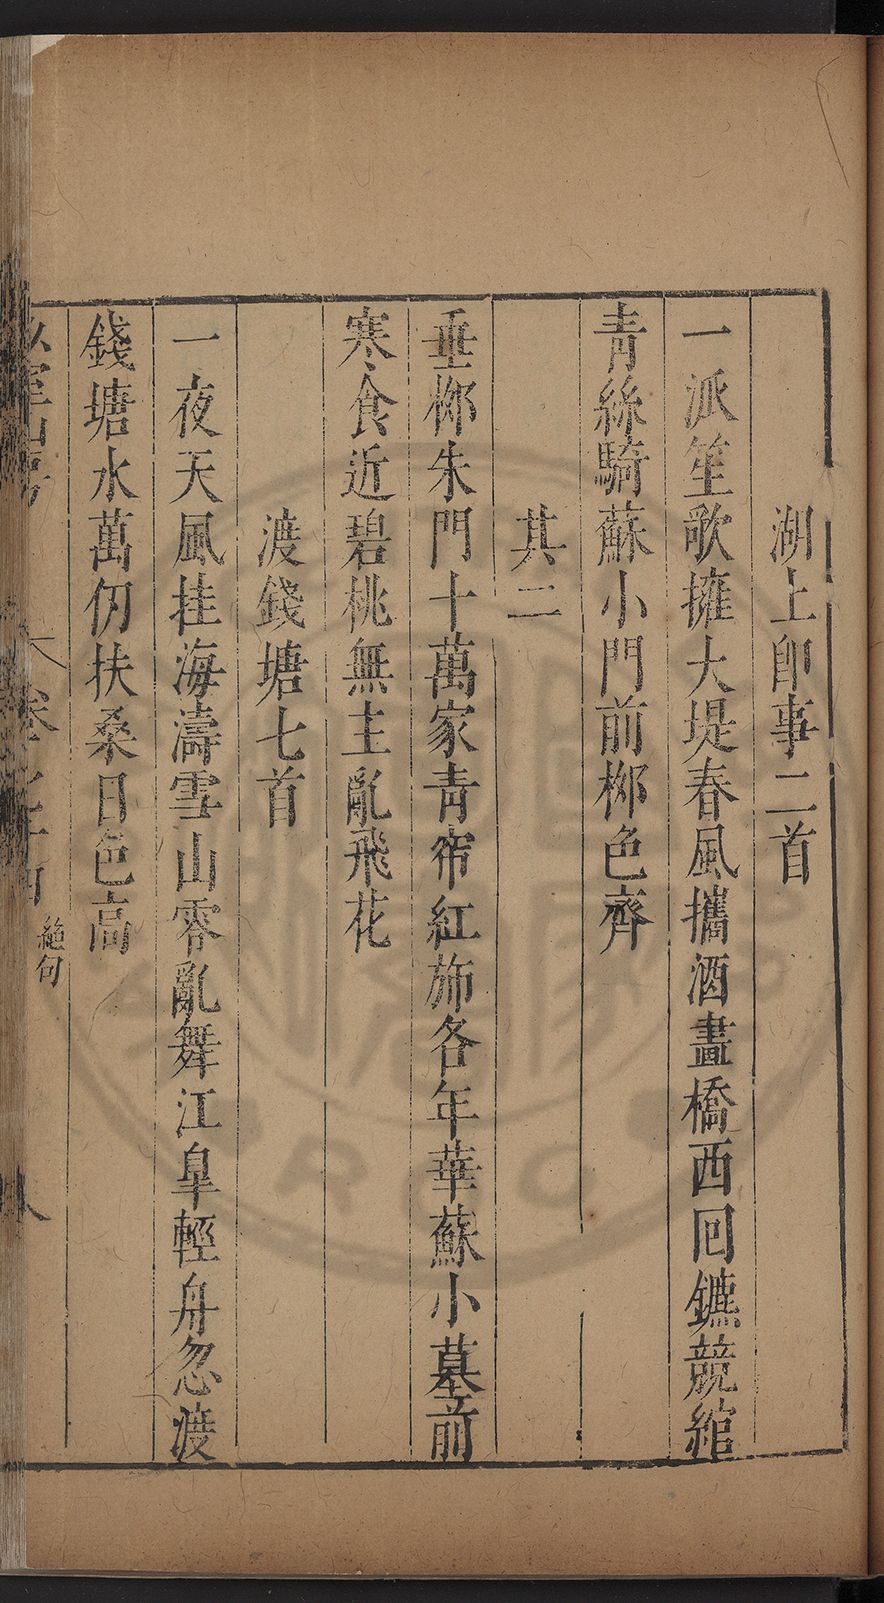 湖上卽事二首
一派笙歌擁大堤春風攜酒畫橋西回鑣競綰
青絲騎蘇小門前桺色齊
其二
垂桺朱門十萬家青帘紅斾各年華蘇小墓前
寒食近碧桃無主亂飛花
渡錢塘七首
一夜天風挂海濤雪山零亂舞江臯輕舟忽渡
錢塘水萬仞扶桑日色高
絶句